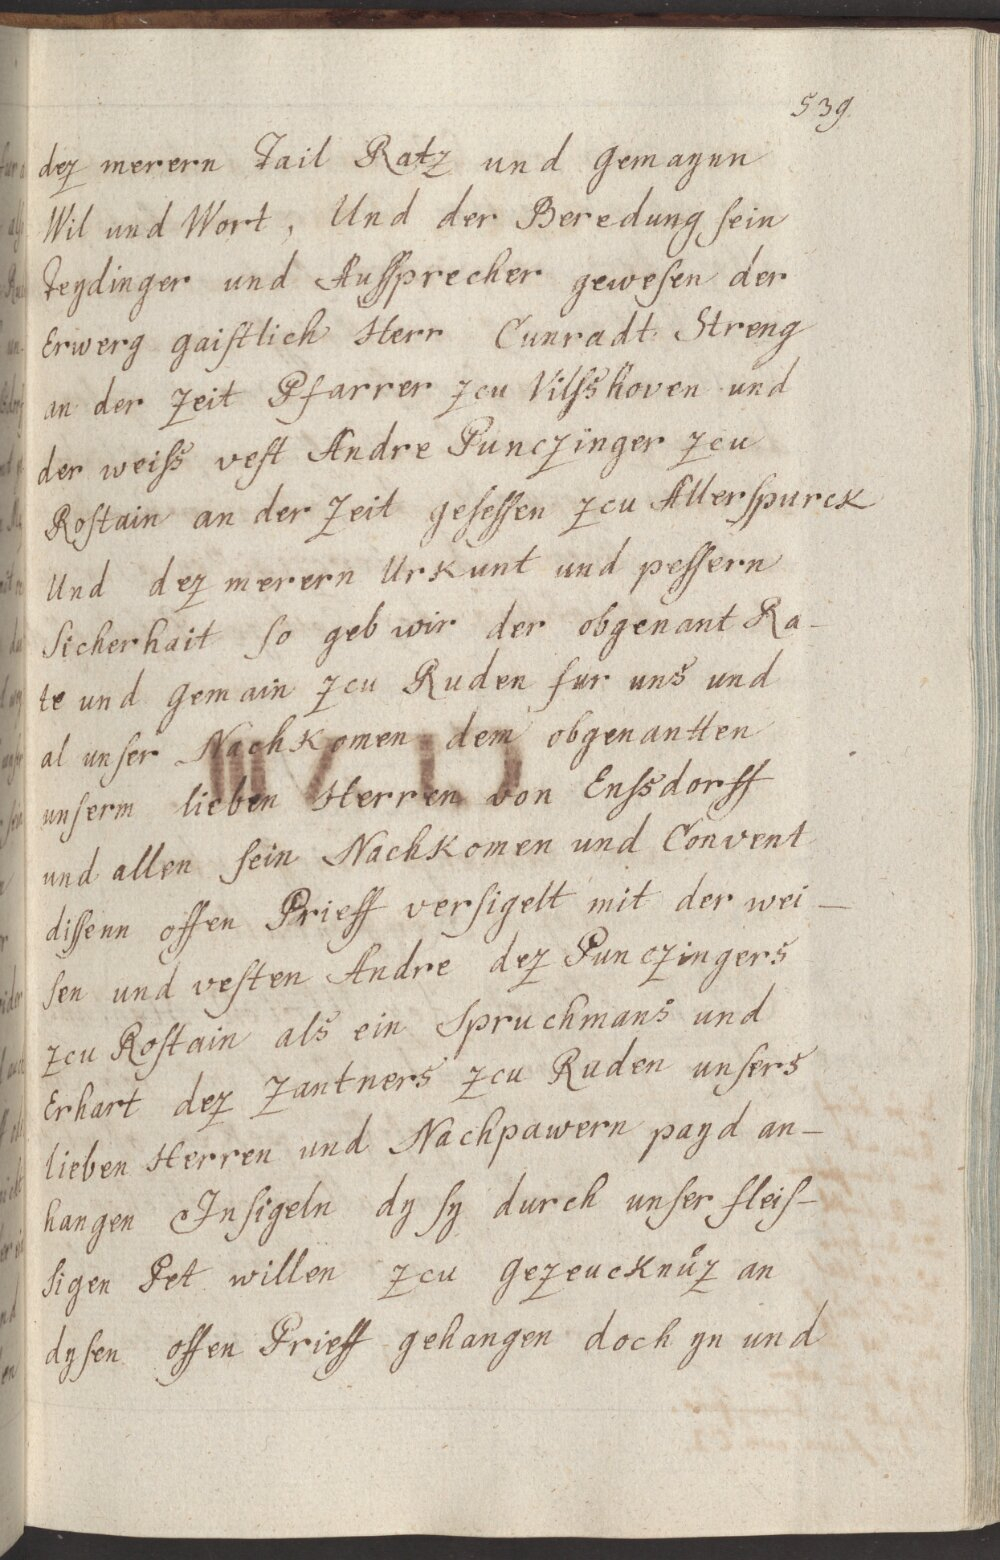 539.
dez merern Tail Ratz und Gemaynn
Wil und Wort, Und der Beredung sein
Teydinger und Aussprecher gewesen der
Erwerg gaistlich Herr Cunradt Streng
an der Zeit Pfarrer zcu Vilsshoven und
der weiss vest Andre Punczinger zcu
Rostain an der Zeit gesessen zcu Allerspurck
Und dez merern Urkunt und pessern
Sicherhait so geb wir der obgenant Ra-
te und Gemain zcu Ruden fur uns und
al unser Nachkomen dem obgenantten
unserm lieben Herren von Enssdorff
und allen sein Nachkomen und Convent
dissenn offen Prieff versigelt mit der wei-
sen und vesten Andre dez Punczingers
zcu Rostain als ein Spruchmans und
Erhart dez Zantners zcu Ruden unsers
lieben Herren und Nachpawern payd an-
hangen Insigeln dy sy durch unser fleis-
sigen Pet willen zcu Gezeucknůz an
dysen offen Prieff gehangen doch yn und